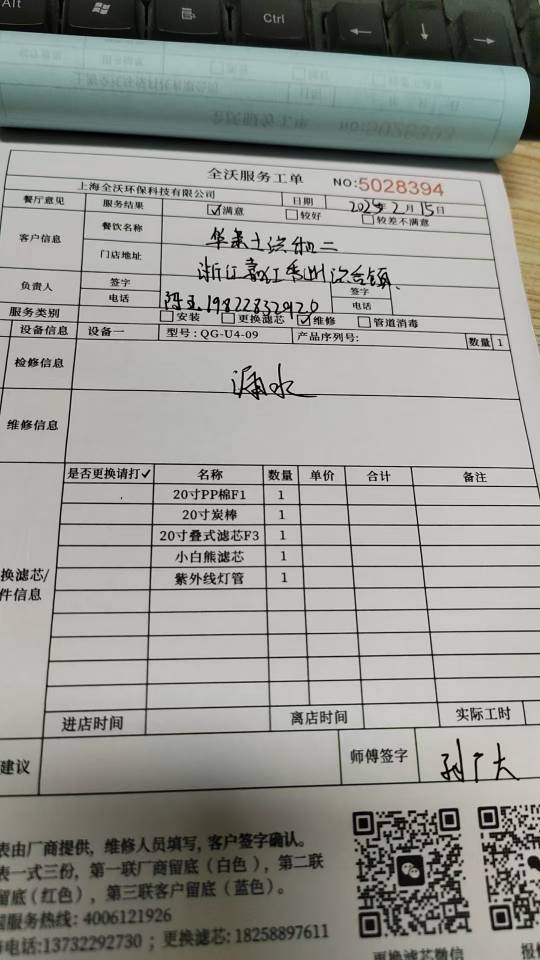 Alt
Ctrl
全沃服务工单 NO:5028394
上海全沃环保科技有限公司 日期 2025年2月15日
餐厅意见 服务结果 ☑满意 □较好 □较差不满意
客户信息 餐饮名称
门店地址 浙江嘉
负责人 签字 签字
电话 19822832920 电话
服务类别 □安装 □更换滤芯 ☑维修 □管道消毒
设备信息 设备一 型号:QG-U4-09 产品序列号: 数量 1
检修信息 漏水
维修信息
是否更换请打✓ 名称 数量 单价 合计 备注
20寸PP棉F1 1
20寸炭棒 1
20寸叠式滤芯F3 1
小白熊滤芯 1
紫外线灯管 1
换滤芯/
件信息
进店时间 离店时间 实际工时
建议 师傅签字 孙广大
表由厂商提供，维修人员填写，客户签字确认。
表一式三份，第一联厂商留底（白色），第二联
留底（红色），第三联客户留底（蓝色）。
服务热线: 4006121926
电话:13732292730 ; 更换滤芯: 18258897611
更换滤芯微信